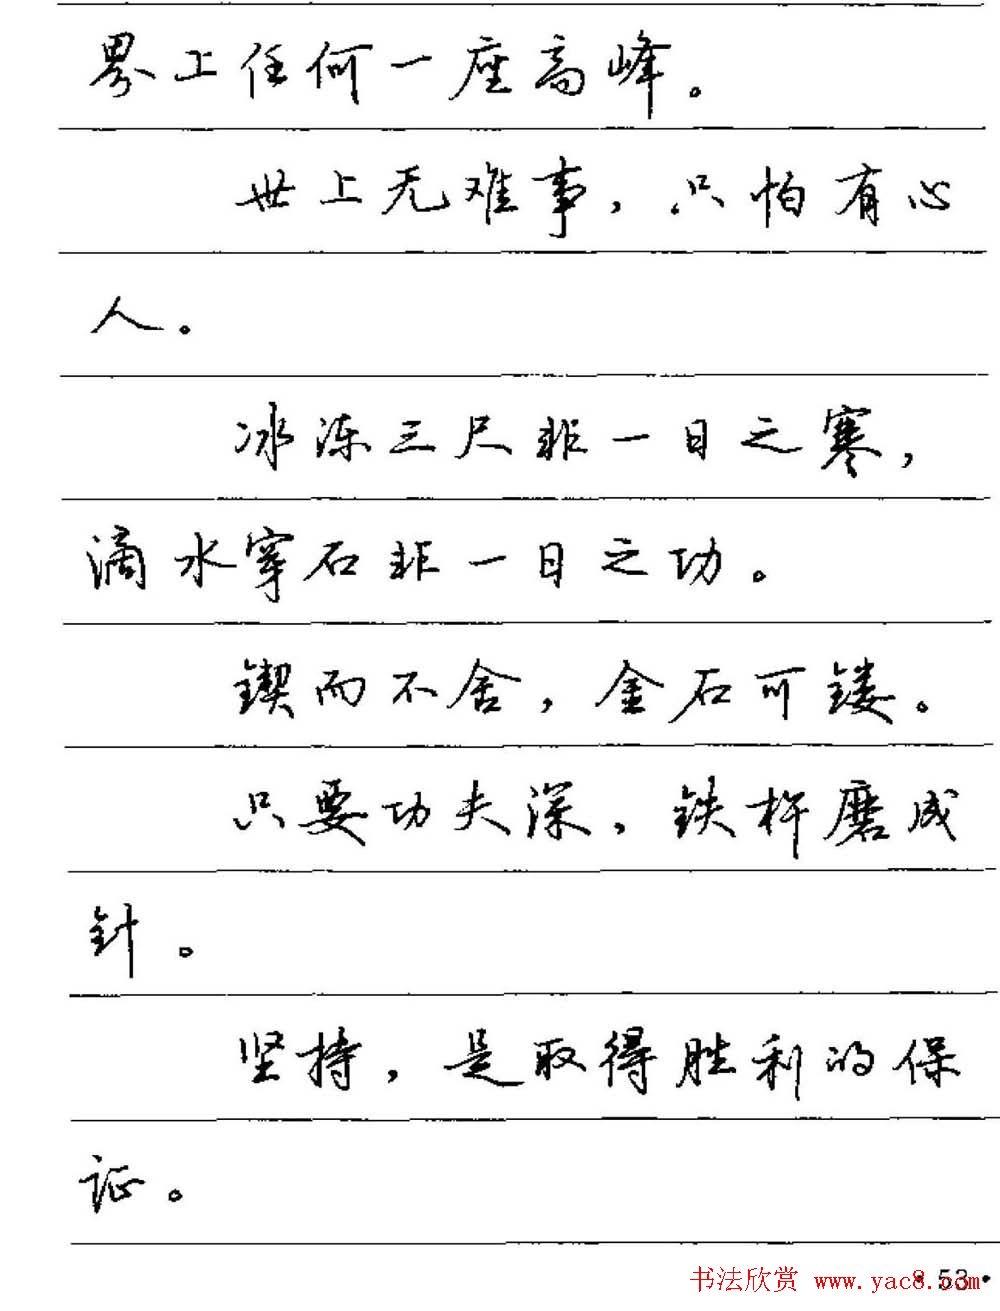 界上任何一座高峰。
世上无难事，只怕有心
人。
冰冻三尺非一日之寒，
滴水穿石非一日之功。
锲而不舍，金石可镂。
只要功夫深，铁杵磨成
针。
坚持，是取得胜利的保
证。
书法欣赏 www.yac8.com
·53·